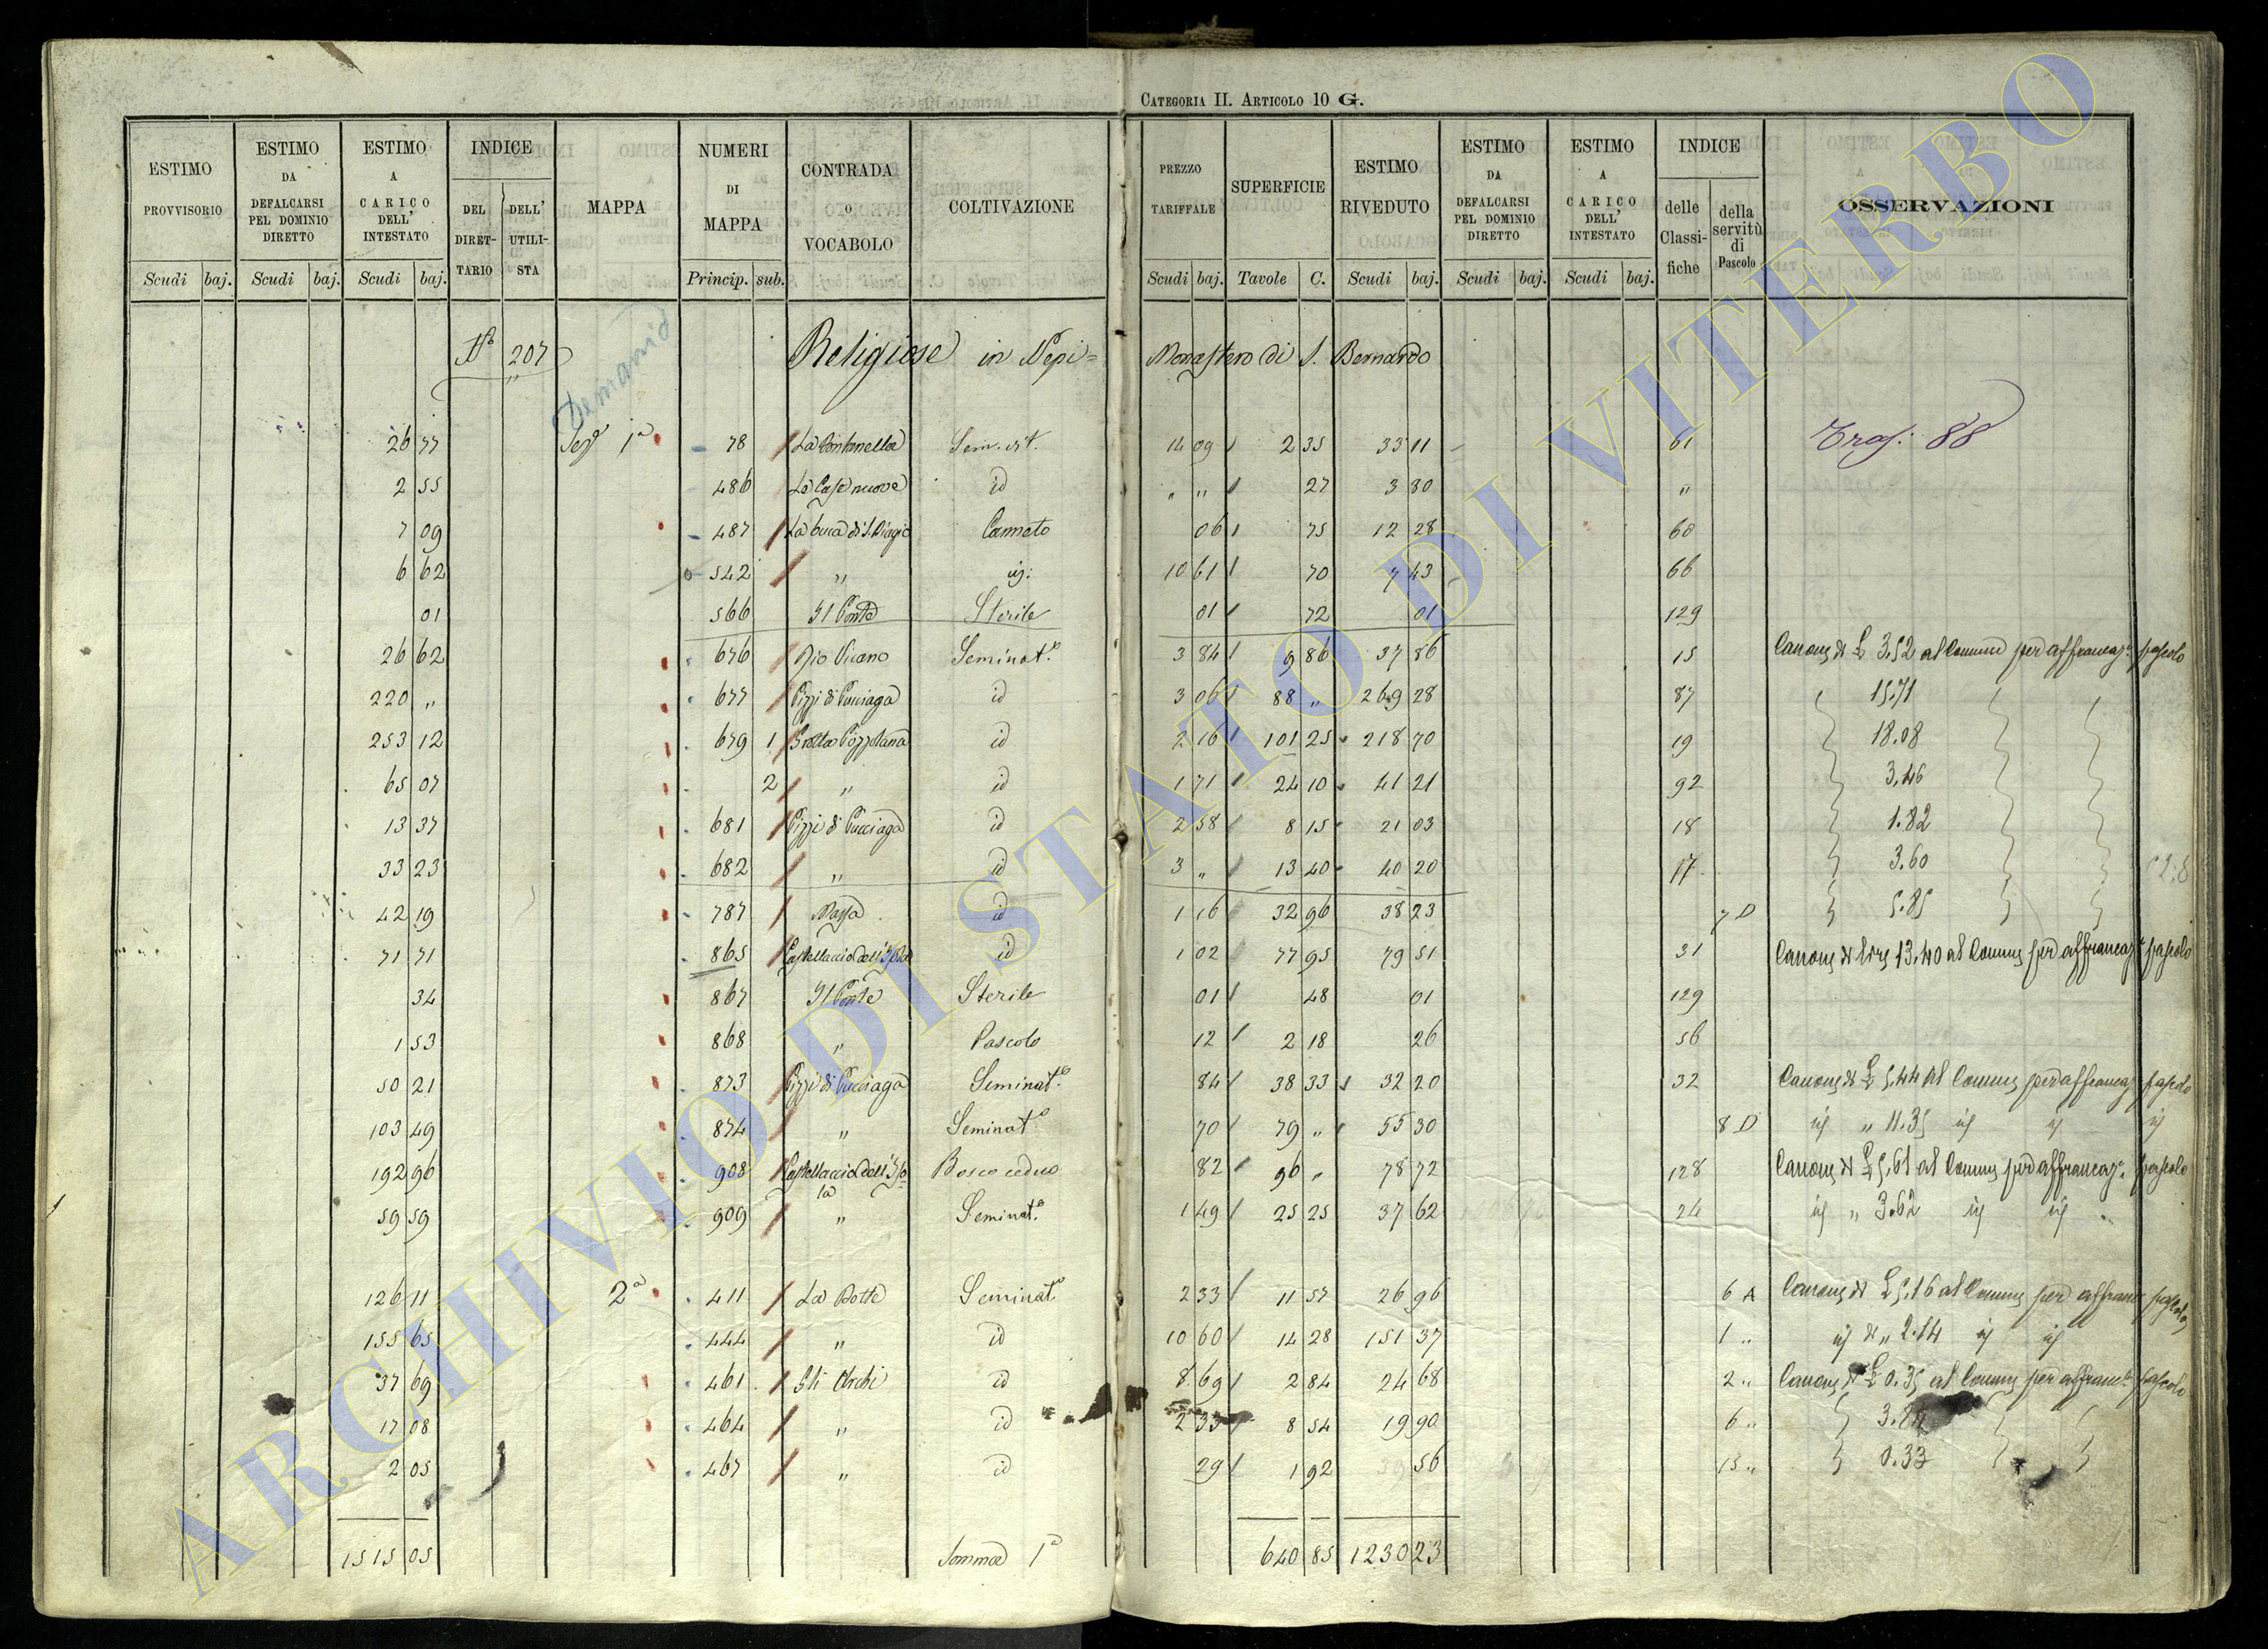 CATEGORIA II. ARTICOLO 10 G.
ESTIMO PROVVISORIO Scudi baj.
ESTIMO DA DEFALCARSI PEL DOMINIO DIRETTO Scudi baj.
ESTIMO A CARICO DELL' INTESTATO Scudi baj.
INDICE DEL DIRET-TARIO DELL' UTILI-STA
MAPPA
NUMERI DI MAPPA Princip. sub.
CONTRADA o VOCABOLO
COLTIVAZIONE
PREZZO TARIFFALE Scudi baj.
SUPERFICIE Tavole C.
ESTIMO RIVEDUTO Scudi baj.
ESTIMO DA DEFALCARSI PEL DOMINIO DIRETTO Scudi baj.
ESTIMO A CARICO DELL' INTESTATO Scudi baj.
INDICE delle Classi-fiche della servitù di Pascolo
OSSERVAZIONI
Nº 207 Religiose in Nepi= Monastero di S. Bernardo
Demanio
26 77 Sezº 1ª 78 La Fontanella Sem. vit. 14 09 2 35 33 11 61
2 55 486 Le Case nuove id " " 27 3 80 "
7 09 487 La buca di S. Biagio Canneto 06 75 12 28 60
6 62 542 " id: 10 61 70 7 43 66
01 566 Il Ponte Sterile 01 72 01 129
26 62 676 Rio Vicano Seminatº 3 84 9 86 37 86 15 Canone di £ 3.52 al Comune per affrancaz. pascolo
220 " 677 Pizzi di Pucciaga id 3 06 88 " 269 28 87 15.71
253 12 679 1 Grotta Pozzolana id 2 16 101 25 218 70 19 18.08
65 07 2 " id 1 71 24 10 41 21 92 3.46
13 37 681 Pizzi di Pucciaga id 2 58 8 15 21 03 18 1.82
33 23 682 " id 3 " 13 40 40 20 17 3.60
42 19 787 Massa id 1 16 32 96 38 23 7 D 5.85
71 71 865 Castellaccio dell'Isola id 1 02 77 95 79 51 31 Canone di lire 13.40 al Comune per affrancaz. pascolo
34 867 Il Ponte Sterile 01 48 01 129
1 53 868 " Pascolo 12 2 18 26 56
50 21 873 Pizzi di Pucciaga Seminatº 84 38 33 32 20 32 Canone di £ 5.44 al Comune per affrancaz. pascolo
103 49 874 " Seminatº 70 79 " 55 30 8 D id " 11.35 id id id
192 96 908 Castellaccio dell'Iso=la Bosco ceduo 82 96 " 78 72 128 Canone di £ 5.61 al Comune per affrancaz. pascolo
59 59 909 " Seminatº 1 49 25 25 37 62 24 id " 3.62 id id
126 11 2ª 411 La Botte Seminatº 2 33 11 57 26 96 6 A Canone di £ 5.16 al Comune per affranc. pascolo
155 65 444 " id 10 60 14 28 151 37 1 " id di " 2.14 id id
37 69 461 Gli Archi id 8 69 2 84 24 68 2 " Canone di £ 0.35 al Comune per affranc. pascolo
17 08 464 " id 2 33 8 54 19 90 6 "
2 05 467 " id 29 1 92 56 15 " 0.33
1515 05 Somma 1ª 640 85 1230 23
ARCHIVIO DI STATO DI VITERBO